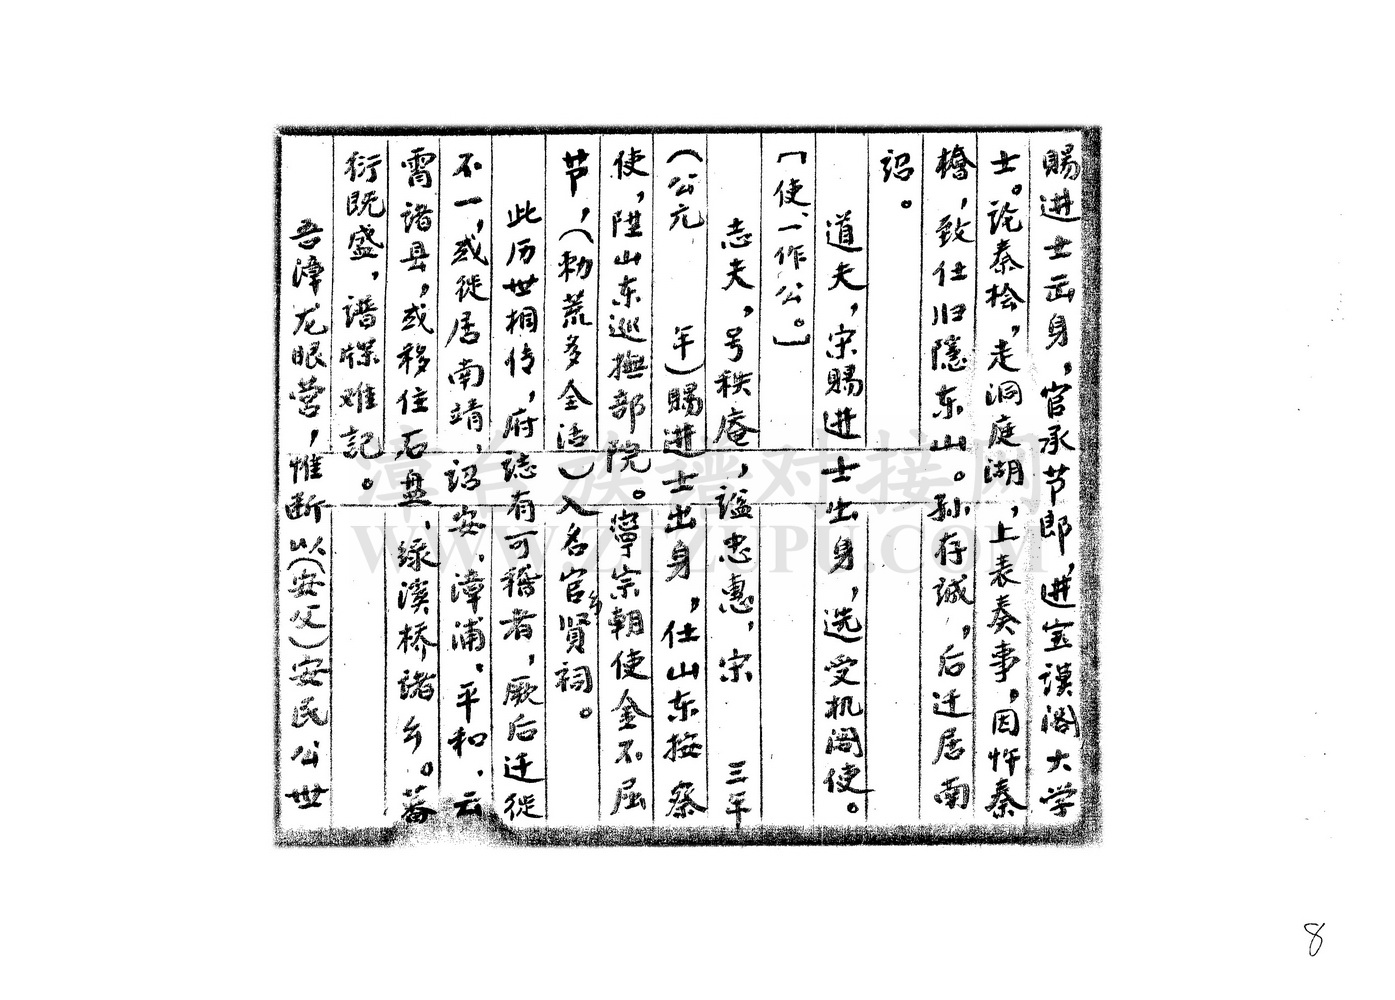 賜进士出身，官承节郎，进宝谟阁大学
士。论秦桧，走洞庭湖，上表奏事，因忤秦
檜，致仕归隱东山。孙存誠，后迁居南
詔。
道夫，宋賜进士出身，选受机阁使。
［使、一作公。］
志夫，号秩庵，謚忠惠，宋　　三年
（公元　　年）賜进士出身，仕山东按察
使，陞山东巡撫部院。寧宗朝使金不屈
节，（勅荒多全活）入名官乡賢祠。
此历世相传，府誌有可稽者，厥后迁徙
不一，或徙居南靖，诏安、漳浦、平和、云
霄诸县，或移住石盘、绿溪桥诸乡。蕃
衍既盛，譜牒难記。
吾漳龙眼营，惟断以（安父）安民公世
漳台族譜对接网
WWW.ZTZUPU.COM
8